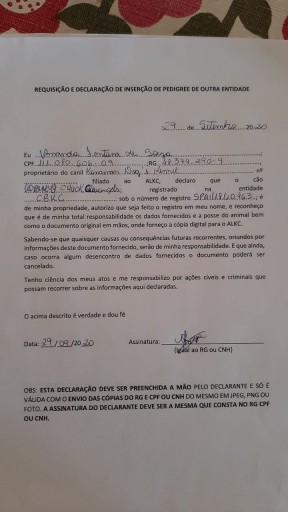 REQUISIÇÃO E DECLARAÇÃO DE INSERÇÃO DE PEDIGREE DE OUTRA ENTIDADE
29 de Setembro 2020
Eu Amanda Santana de Souza
CPF 111.080.606-09, RG 48.344.290-4,
proprietário do canil Kanaman Dog's Kennel, nº
filiado ao ALKC, declaro que o cão
registrado na entidade
CBKC sob o número de registro é
de minha propriedade, autorizo que seja feito o registro em meu nome, e reconheço
que é de minha total responsabilidade os dados fornecidos e a posse do animal bem
como o documento original em mãos, onde forneço a cópia digital para o ALKC.
Sabendo-se que quaisquer causas ou consequências futuras recorrentes, oriundos por
informações deste documento fornecido, serão de minha responsabilidade. E que ainda,
caso ocorra algum desencontro de dados fornecidos o documento poderá ser
cancelado.
Tenho ciência meus atos e me responsabilizo por ações cíveis e criminais que
possam recorrer sobre as informações aqui declaradas.
O acima descrito é verdade e dou fé
Data: 29/09/2020 Assinatura:
(igual ao RG ou CNH)
OBS: ESTA DECLARAÇÃO DEVE SER PREENCHIDA A MÃO PELO DECLARANTE E SÓ É
VÁLIDA COM O ENVIO DAS CÓPIAS DO RG E CPF OU CNH DO MESMO EM JPEG, PNG OU
FOTO. A ASSINATURA DO DECLARANTE DEVE SER A MESMA QUE CONSTA NO RG CPF
OU CNH.